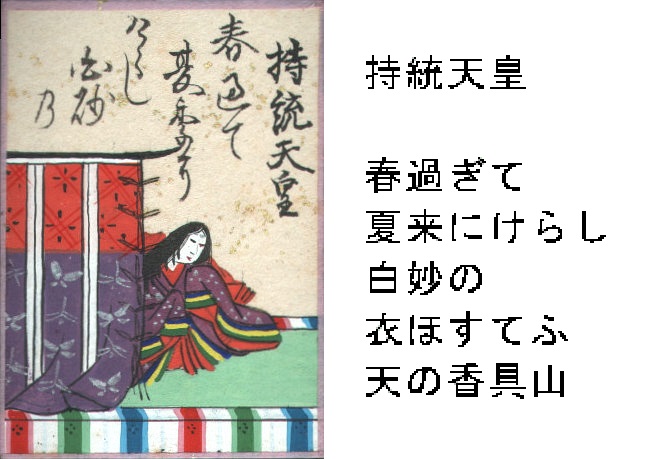 持統天皇
春過て
夏来に
けらし
白妙
乃
持統天皇
春過ぎて
夏来にけらし
白妙の
衣ほすてふ
天の香具山